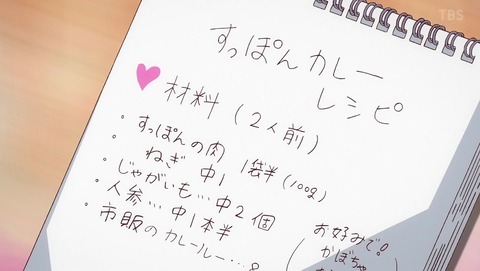 TBS
すっぽんカレー
レシピ
材料(2人前)
・すっぽんの肉 1袋半(100g)
・ねぎ 中1
・じゃがいも…中2個
・人参…中1本半
・市販のカレールー…
お好みで!
かぼちゃ